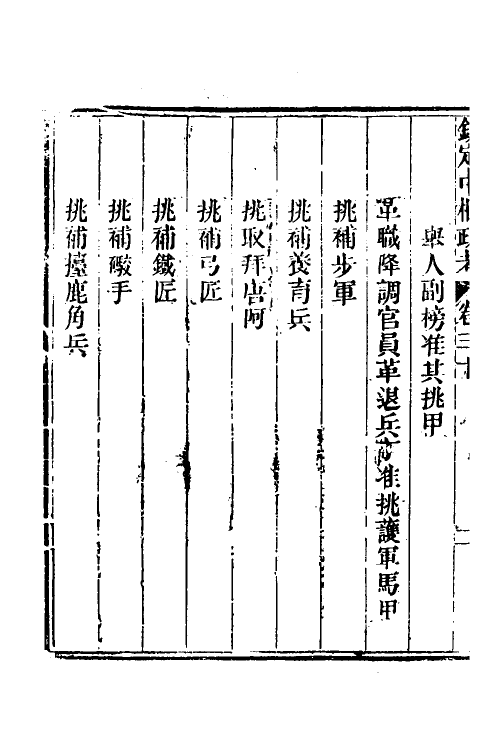 欽定中樞政考 卷三十
舉人副榜准其挑甲
革職降調官員革退兵丁准挑護軍馬甲
挑補步軍
挑補養育兵
挑取拜唐阿
挑補弓匠
挑補鐵匠
挑補礮手
挑補擡鹿角兵